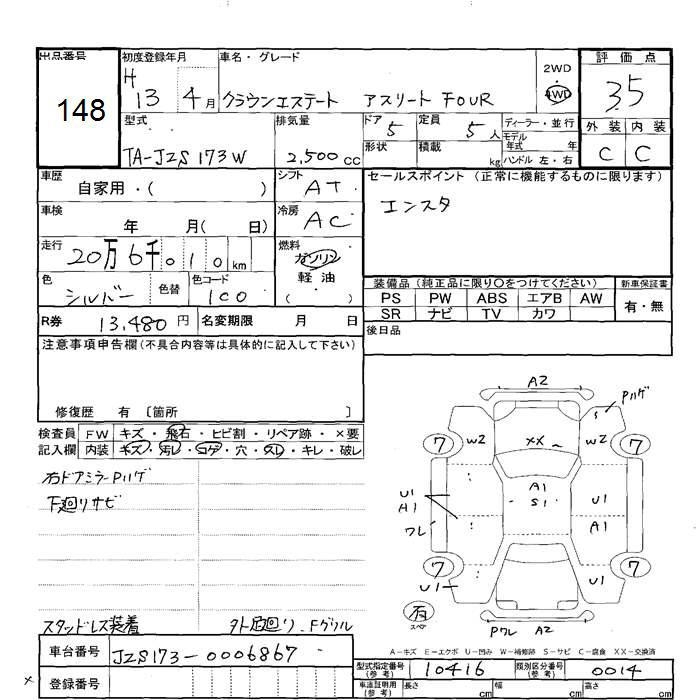 出品番号
148
初度登録年月
H 13 4月
車名・グレード
クラウンエステート アスリート FOUR
2WD
4WD
評価点
3.5
外装 内装
C C
型式
TA-JZS173W
排気量
2,500 cc
ドア 5
形状
定員 5 人
積載 kg
ディーラー・並行
モデル年式 年
ハンドル 左・右
車歴
自家用・( )
シフト AT
車検
年 月( 日)
冷房 AC
走行
20万6千010 km
燃料
ガソリン
軽油
( )
色 シルバー
色替
色コード 1C0
R券 13,480円
名変期限 月 日
セールスポイント (正常に機能するものに限ります)
エンスタ
装備品 (純正品に限り○をつけてください)
PS PW ABS エアB AW
SR ナビ TV カワ
新車保証書
有・無
後日品
注意事項申告欄(不具合内容等は具体的に記入して下さい)
修復歴 有 〔箇所 〕
検査員記入欄
FW キズ・飛石・ヒビ割・リペア跡・×要
内装 キズ・汚レ・コゲ・穴・スレ・キレ・破レ
右ドアミラーPハゲ
下廻リサビ
スタッドレス装着
外足廻リ、Fグリル
A2
Pハゲ
7 W2 XX W2 7
U1
A1
ワレ
A1
S1
U1
A1
7 U1 7
有
スペア
Pワレ A2
A-キズ E-エクボ U-凹み W-補修跡 S-サビ C-腐食 XX-交換済
車台番号 JZS173-0006867
登録番号
型式指定番号(参考) 10416
類別区分番号(参考) 0014
車庫証明用(参考) 長さ cm 幅 cm 高さ cm